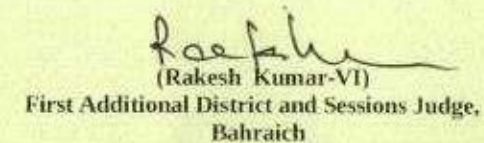 (Rakesh Kumar-VI)
First Additional District and Sessions Judge,
Bahraich